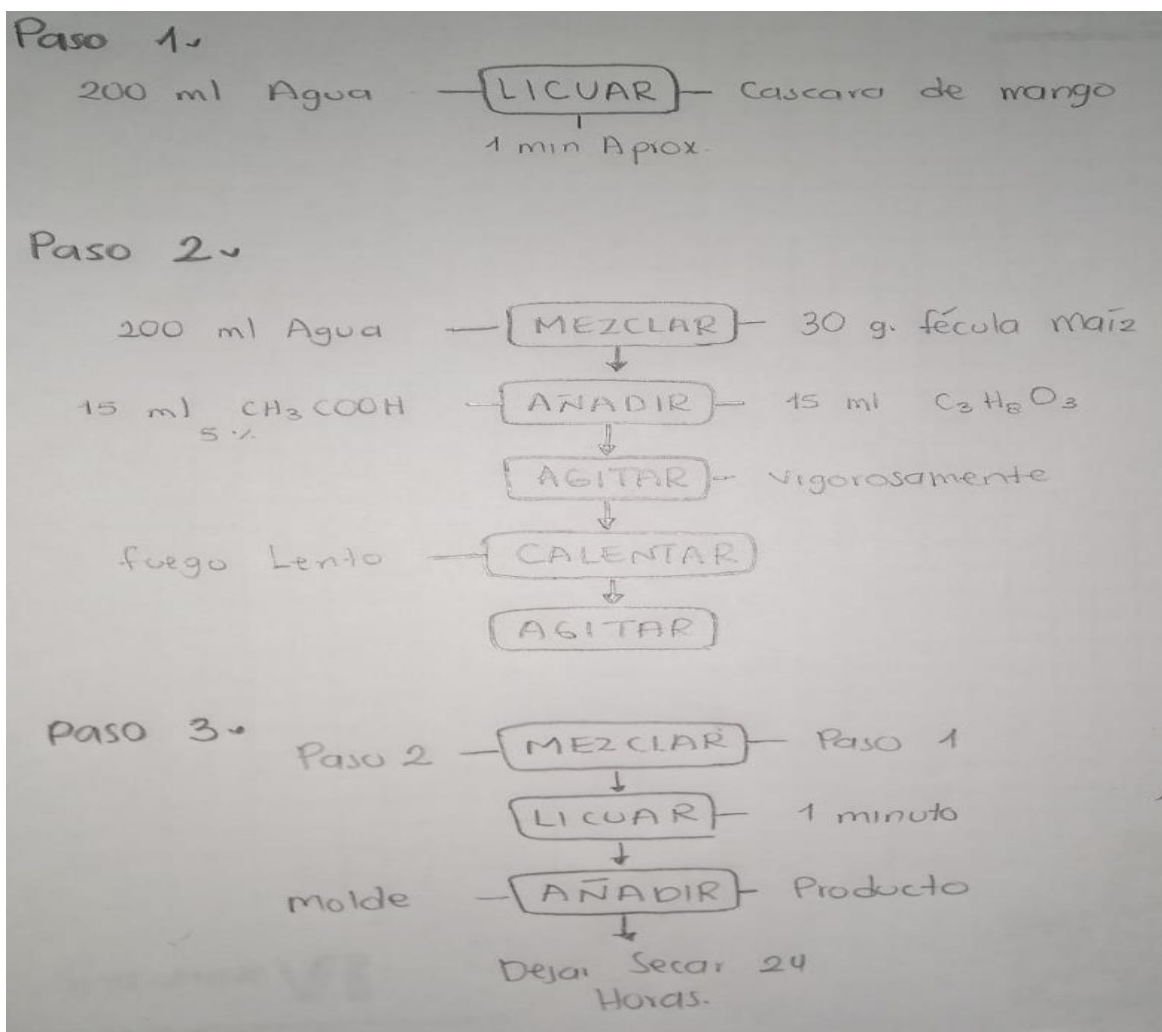 Paso 1.
200 ml Agua LICUAR Cascara de mango
1 min Aprox.
Paso 2.
200 ml Agua MEZCLAR 30 g. fécula maíz
15 ml CH3COOH AÑADIR 15 ml C3H8O3
5 %
AGITAR vigorosamente
fuego Lento CALENTAR
AGITAR
Paso 3.
Paso 2 MEZCLAR Paso 1
LICUAR 1 minuto
Molde AÑADIR Producto
Dejar Secar 24
Horas.